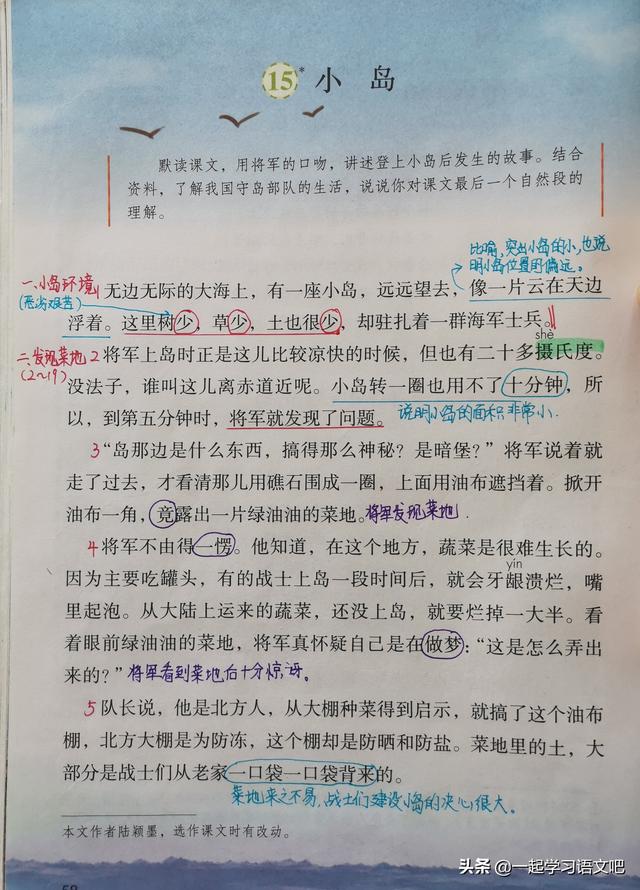 15* 小岛
默读课文，用将军的口吻，讲述登上小岛后发生的故事。结合
资料，了解我国守岛部队的生活，说说你对课文最后一个自然段的
理解。
比喻，突出小岛的小，也说
明小岛位置的偏远。
一、小岛环境
(恶劣艰苦)
1 无边无际的大海上，有一座小岛，远远望去，像一片云在天边
浮着。这里树少，草少，土也很少，却驻扎着一群海军士兵。
shè
二、发现菜地
(2～19)
2 将军上岛时正是这儿比较凉快的时候，但也有二十多摄氏度。
没法子，谁叫这儿离赤道近呢。小岛转一圈也用不了十分钟，所
以，到第五分钟时，将军就发现了问题。
说明小岛的面积非常小.
3 “岛那边是什么东西，搞得那么神秘？是暗堡？”将军说着就
走了过去，才看清那儿用礁石围成一圈，上面用油布遮挡着。掀开
油布一角，竟露出一片绿油油的菜地。
将军发现菜地.
4 将军不由得一愣。他知道，在这个地方，蔬菜是很难生长的。
yín
因为主要吃罐头，有的战士上岛一段时间后，就会牙龈溃烂，嘴
里起泡。从大陆上运来的蔬菜，还没上岛，就要烂掉一大半。看
着眼前绿油油的菜地，将军真怀疑自己是在做梦：“这是怎么弄出
来的？”
将军看到菜地后十分惊讶。
5 队长说，他是北方人，从大棚种菜得到启示，就搞了这个油布
棚，北方大棚是为防冻，这个棚却是防晒和防盐。菜地里的土，大
部分是战士们从老家一口袋一口袋背来的。
菜地来之不易，战士们建设小岛的决心很大。
本文作者陆颖墨，选作课文时有改动。
58
头条 @一起学习语文吧